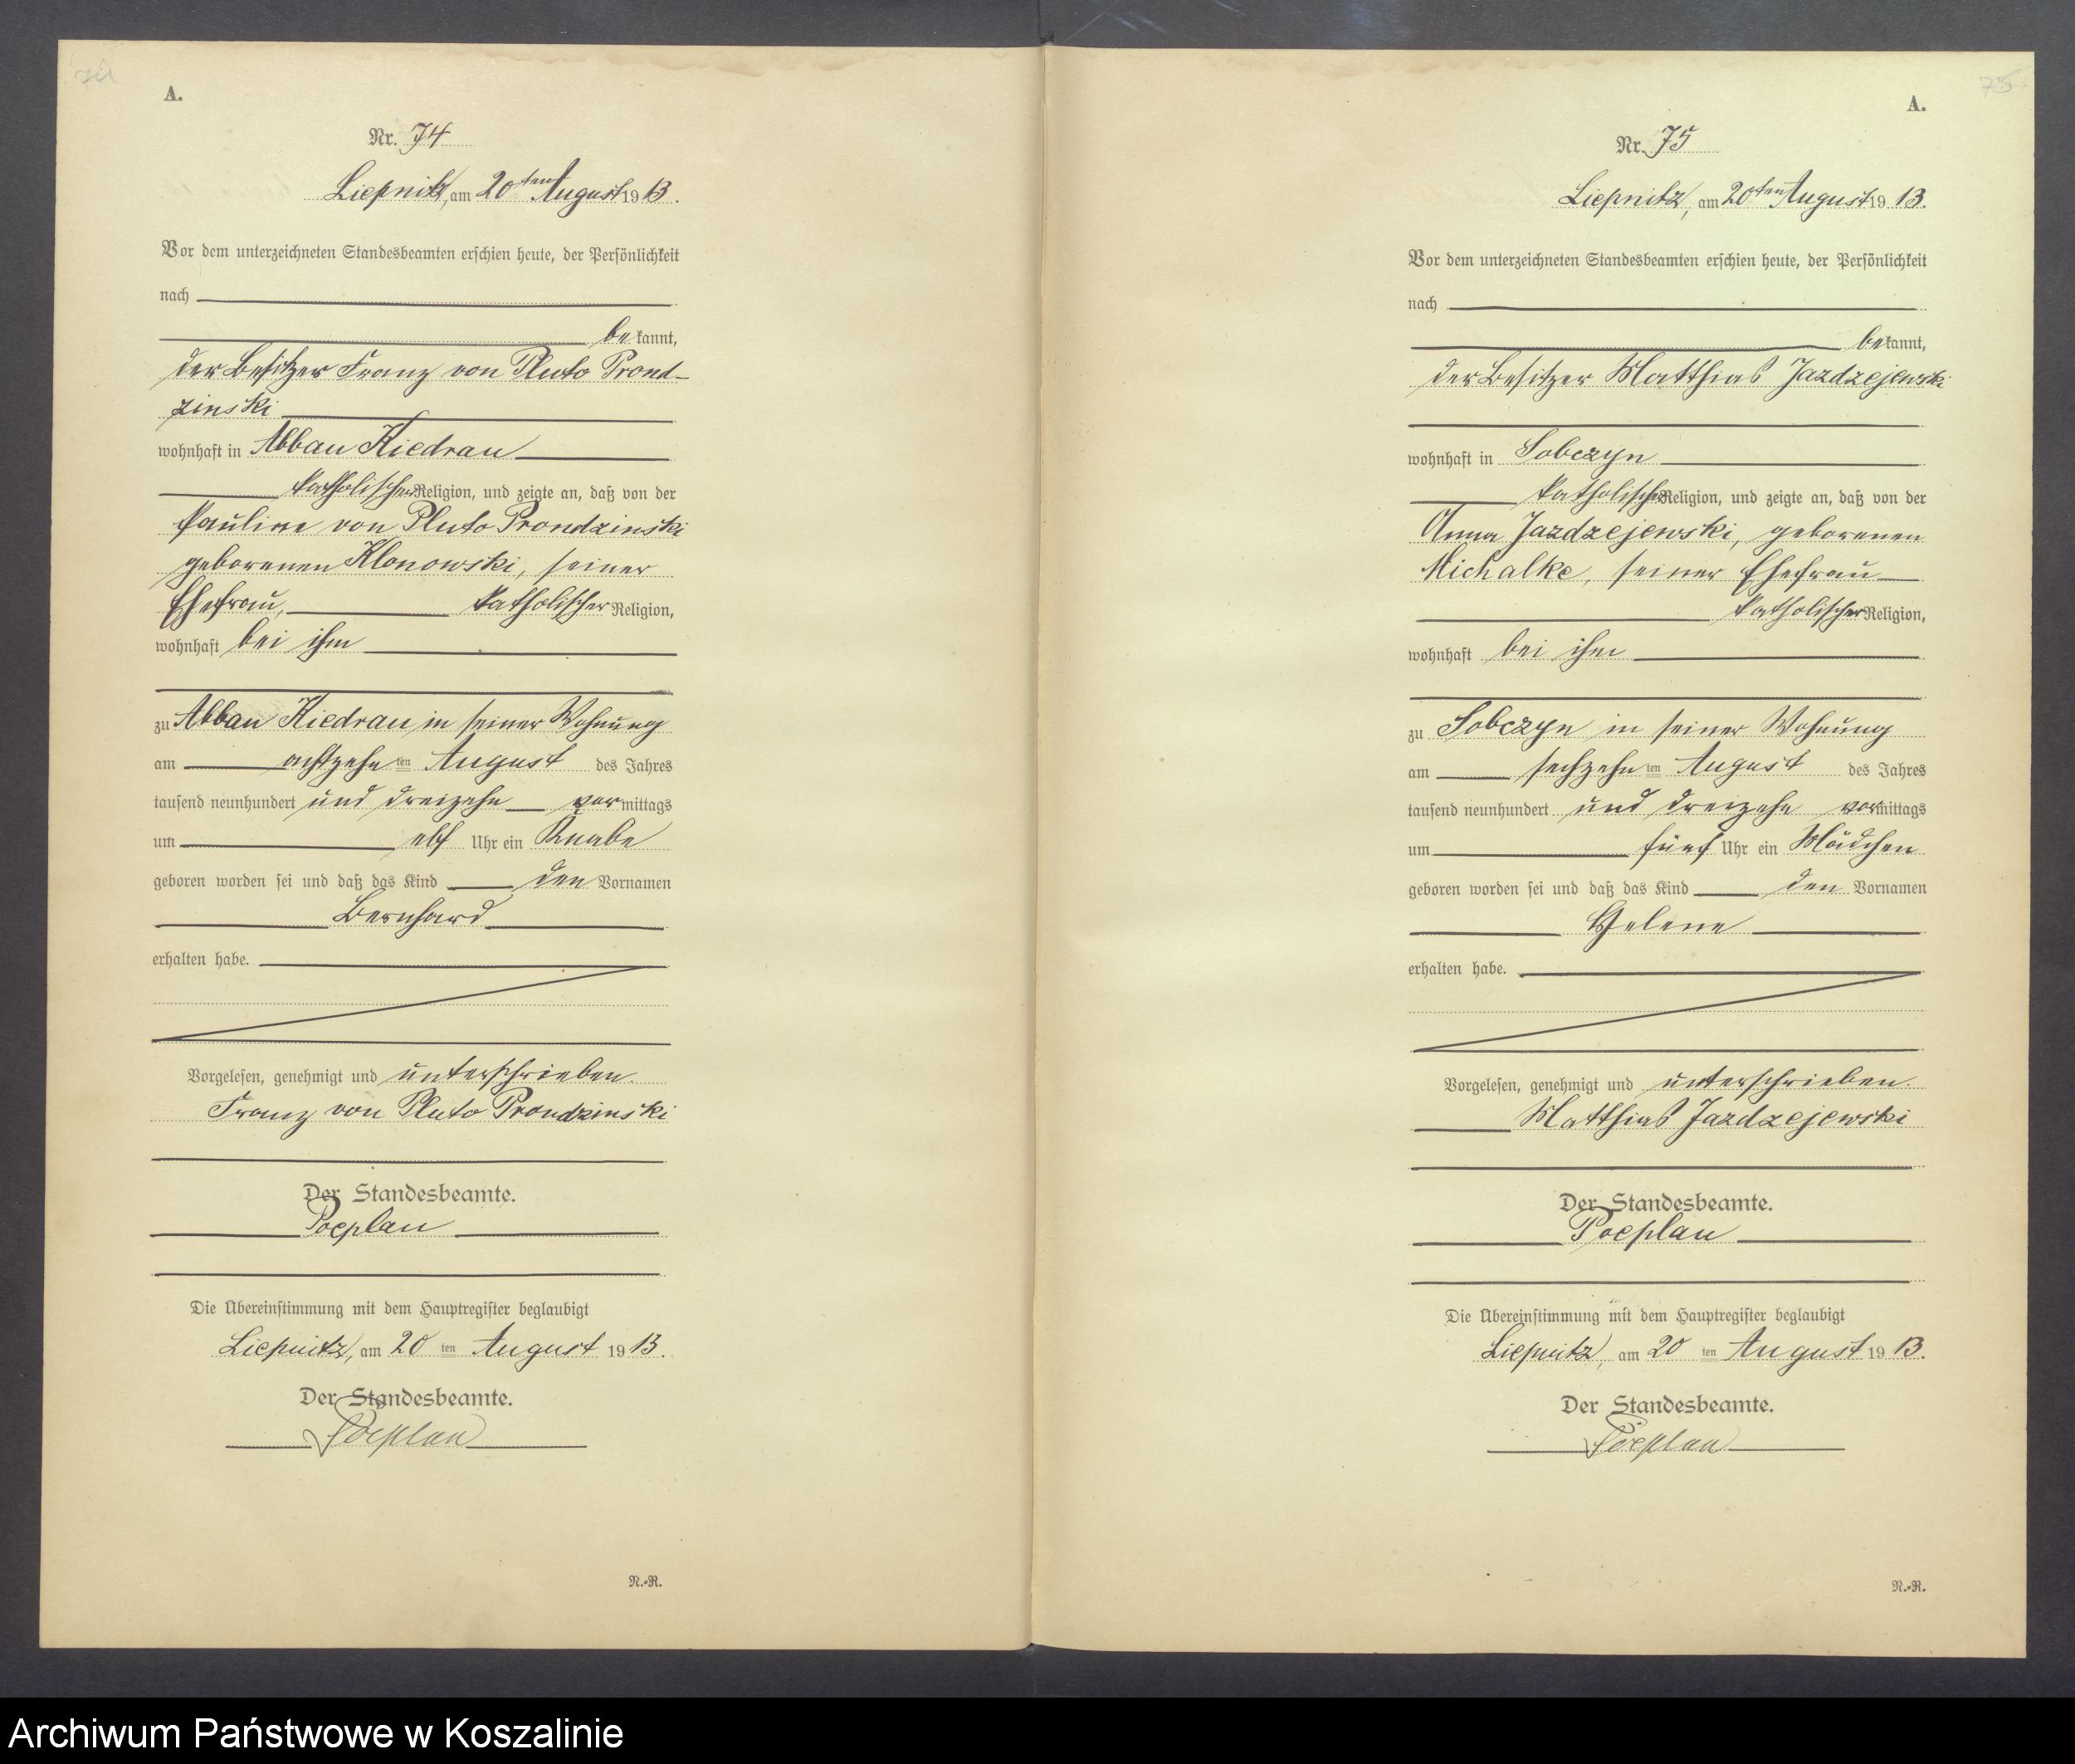 74
A.
Nr. 74
Liepnitz, am 20ten August 1913.
Vor dem unterzeichneten Standesbeamten erschien heute, der Persönlichkeit
nach
bekannt,
der Besitzer Franz von Pluto Prond-
zinski
wohnhaft in Abbau Kiedrau
katholischer Religion, und zeigte an, daß von der
Pauline von Pluto Prondzinski
geborenen Klonowski, seiner
Ehefrau, katholischer Religion,
wohnhaft bei ihm
zu Abbau Kiedrau in seiner Wohnung
am achtzehnten August des Jahres
tausend neunhundert und dreizehn vormittags
um elf Uhr ein Knabe
geboren worden sei und daß das Kind den Vornamen
Bernhard
erhalten habe.
Vorgelesen, genehmigt und unterschrieben.
Franz von Pluto Prondzinski
Der Standesbeamte.
Poeplau
Die Übereinstimmung mit dem Hauptregister beglaubigt
Liepnitz, am 20ten August 1913.
Der Standesbeamte.
Poeplau
N.-R.
75
A.
Nr. 75
Liepnitz, am 20ten August 1913.
Vor dem unterzeichneten Standesbeamten erschien heute, der Persönlichkeit
nach
bekannt,
der Besitzer Matthias Jazdzejewski
wohnhaft in Sobczyn
katholischer Religion, und zeigte an, daß von der
Anna Jazdzejewski, geborenen
Michalke, seiner Ehefrau
katholischer Religion,
wohnhaft bei ihm
zu Sobczyn in seiner Wohnung
am sechzehnten August des Jahres
tausend neunhundert und dreizehn vormittags
um fünf Uhr ein Mädchen
geboren worden sei und daß das Kind den Vornamen
Helene
erhalten habe.
Vorgelesen, genehmigt und unterschrieben.
Matthias Jazdzejewski
Der Standesbeamte.
Poeplau
Die Übereinstimmung mit dem Hauptregister beglaubigt
Liepnitz, am 20ten August 1913.
Der Standesbeamte.
Poeplau
N.-R.
Archiwum Państwowe w Koszalinie